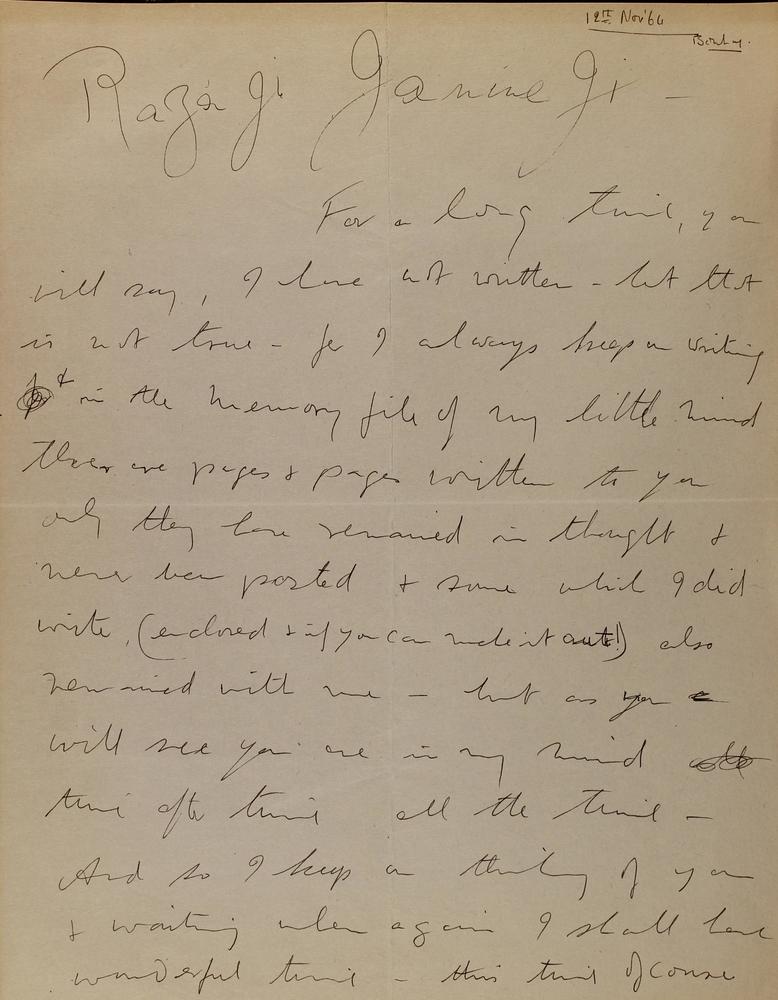 12th Nov'64
Bombay.
Raza Ji Janine Ji -
For a long time, you
will say, I have not written - but that
is not true - for I always keep on writing
& in the memory file of my little mind
there are pages & pages written to you
only they have remained in thought &
never been posted & some which I did
write, (enclosed & if you can make it out!) also
remained with me - but as you
will see you are in my mind
time after time all the time -
And so I keep on thinking of you
& waiting when again I shall have
wonderful time - this time of course